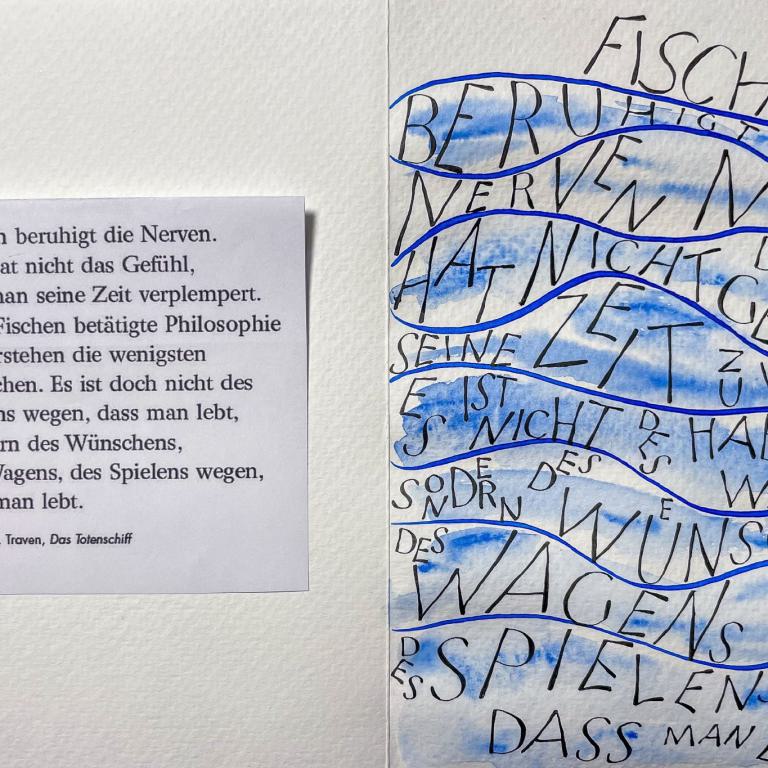 n beruhigt die Nerven.
at nicht das Gefühl,
nan seine Zeit verplempert.
Fischen betätigte Philosophie
rstehen die wenigsten
chen. Es ist doch nicht des
ns wegen, dass man lebt,
rn des Wünschens,
Wagens, des Spielens wegen,
man lebt.
. Traven, Das Totenschiff
FISCH
BERUHIGT
NERVEN
HAT NICHT
SEINE ZEIT ZU
ES IST NICHT DES HAB
SONDERN DES WÜNS
DES WAGENS
DES SPIELENS
DASS MAN